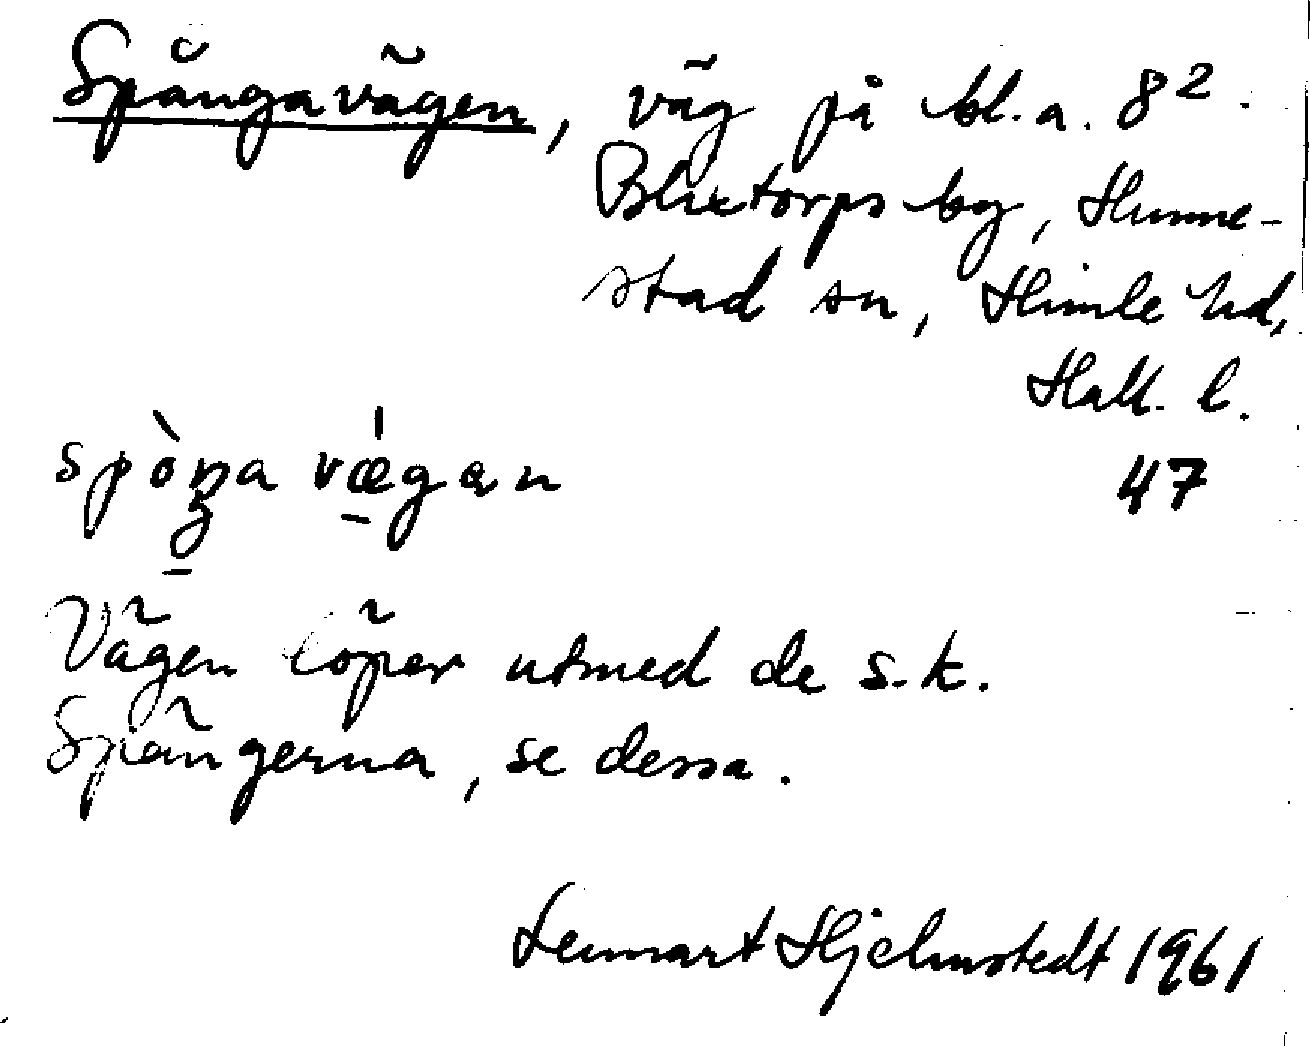 Spångavägen, väg på bl.a. 8².
Blixtorps by, Hunne-
stad sn, Himle hd,
Hall. l.
spòŋa vǽgan 47
Vägen löper utmed de s.k.
Spängerna, se dessa.
Lennart Hjelmstedt 1961